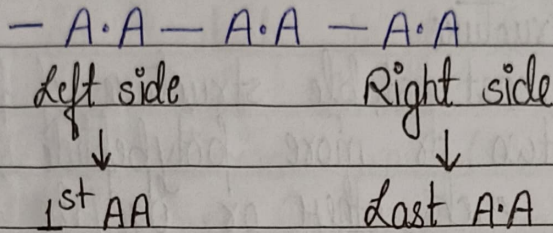 - A·A - A·A - A·A
Left side Right side
↓ ↓
1st AA Last A·A